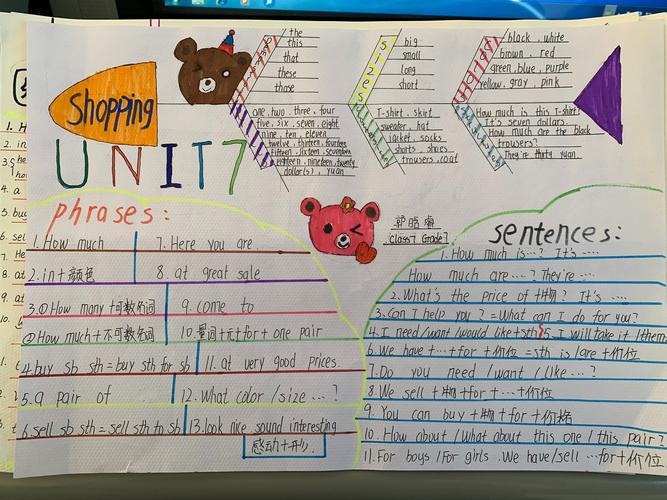 Shopping
UNIT7
the
this
that
these
those
one, two, three, four
five, six, seven, eight
nine, ten, eleven
twelve, thirteen, fourteen
fifteen, sixteen, seventeen
eighteen, nineteen, twenty
dollar(s), yuan
sizes
big
small
long
short
T-shirt, skirt
sweater, hat
jacket, socks
shorts, shoes
trousers, coat
black, white
brown, red
green, blue, purple
yellow, gray, pink
How much is this T-shirt?
It's seven dollars.
How much are the black
trousers?
They're thirty yuan.
Class7 Grade7
phrases:
1. How much
2. in+颜色
3.①How many+可数名词
②How much+不可数名词
4. buy sb sth = buy sth for sb
5. a pair of
6. sell sb sth = sell sth to sb
7. Here you are.
8. at great sale
9. come to
10. 量词+n+for+one pair
11. at very good prices.
12. What color/size ...?
13. look nice sound interesting
感动+形.
sentences:
1. How much is...? It's ....
How much are ...? They're ...
2. What's the price of +物? It's ....
3. Can I help you? = What can I do for you?
4. I need/want/would like+sth
5. I will take it/them
6. We have+...+for+价位 = sth is/are+价位
7. Do you need/want/like...?
8. We sell+物+for+...+价位
9. You can buy+物+for+价格
10. How about/What about this one/this pair?
11. For boys/For girls. We have/sell ...for+价位